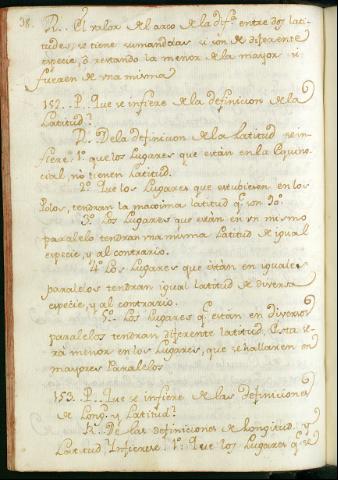 38.
R. El valor del arco de la dif.ª entre dos lati-
tudes, se tiene sumandolas si son de diferente
especie, ò restando la menor de la mayor si
fuesen de vna misma
152.. P.. Que se infiere de la definicion de la
Latitud?
R. De la definicion de la Latitud se in-
fiere: 1º que los Lugares que estàn en la Equino-
cial, no tienen Latitud.
2º Que los Lugares que estubieren en los
Polos, tendran la maxima latitud q.e son 90º
3º Los Lugares que estàn en vn mismo
paralelo tendran vna misma Latitud de igual
especie, y al contrario.
4º Los Lugares que estàn en iguales
paralelos tendran igual latitud de diversa
especie, y al contrario.
5º Los Lugares q.e estàn en diversos
paralelos tendran diferente latitud. Esta se-
rà menor en los Lugares, que se hallaren en
mayores Paralelos
153.. P.. Que se infiere de las definiciones
de Long.d y Latitud?
R. De las definiciones de Longitud y
Latitud Infierese: 1º Que los Lugares q.e